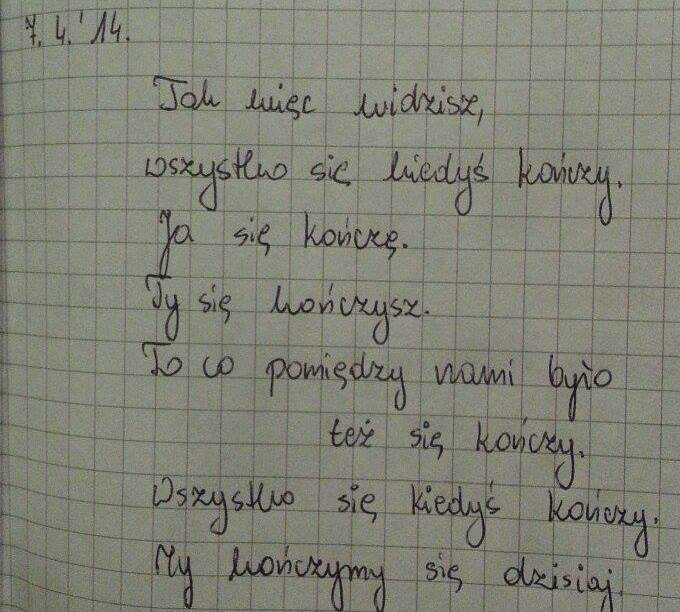 7. 4. '14.
Tak więc widzisz,
wszystko się kiedyś kończy.
Ja się kończę.
Ty się kończysz.
To co pomiędzy nami było
też się kończy.
Wszystko się kiedyś kończy.
My kończymy się dzisiaj.